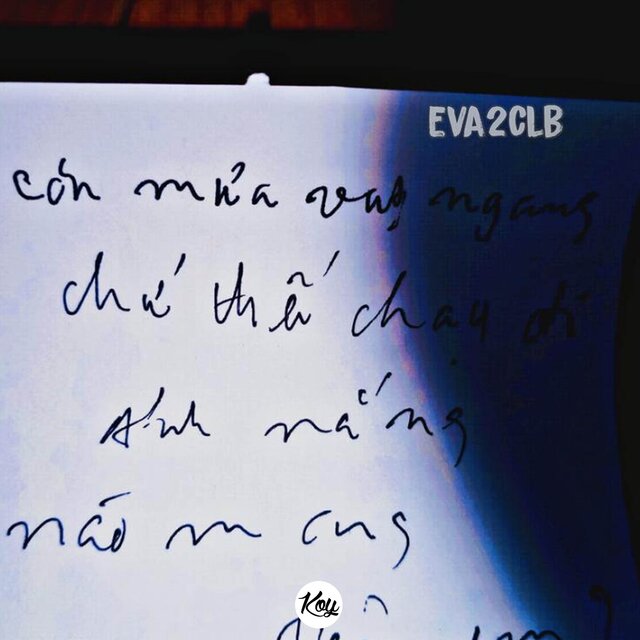 EVA2CLB
cón mưa vay ngang
chứ thể chạy đi
Ánh nắng
não m cng
Koy